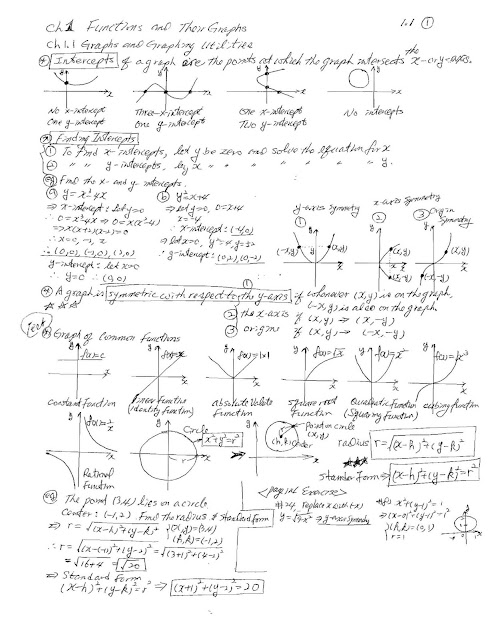 Ch 1 Functions and Their Graphs
1.1 ①
Ch 1.1 Graphs and Graphing Utilities
Intercepts of a graph are the points at which the graph intersects the x- or y-axis.
No x-intercept
One y-intercept
Three x-intercept
One y-intercept
One x-intercept
Two y-intercept
No intercepts
Finding Intercepts
① To find x-intercepts, let y be zero and solve the equation for x
② " " y-intercepts, let x " " " " " " " y.
Find the x- and y-intercepts.
ⓐ y=x³-4x
⇒ x-intercept: Let y=0
∴ 0=x³-4x ⇒ 0=x(x²-4)
⇒ x(x+2)(x-2)=0
∴ x=0, -2, 2
∴ (0,0), (-2,0), (2,0)
y-intercept: let x=0
∴ y=0 ∴ (0,0)
ⓑ y²=x+4
⇒ Let y=0, 0=x+4
x=-4
∴ x-intercept: (-4,0)
⇒ let x=0, y²=4, y=±2
∴ y-intercept: (0,2), (0,-2)
y-axis symmetry
①
(-x,y) (x,y)
x-axis symmetry
②
(x,y)
(x,-y)
③ Origin Symmetry
(x,y)
(-x,-y)
A graph is symmetric with respect to ① the y-axis if whenever (x,y) is on the graph,
(-x,y) is also on the graph
② the x-axis if (x,y) ⇒ (x,-y)
③ origin if (x,y) ⇒ (-x,-y)
Graph of Common Functions
f(x)=c
Constant Function
f(x)=x
Linear Function
(identity function)
f(x)=|x|
Absolute Value
Function
f(x)=√x
Square root
Function
f(x)=x²
Quadratic Function
(Squaring function)
f(x)=x³
cubing function
f(x)=1/x
Rational
Function
Circle
x²+y²=r²
r
Point on circle
(x,y)
(h,k) center
radius r=√(x-h)²+(y-k)²
Standard form ⇒ (x-h)²+(y-k)²=r²
The point (3,4) lies on a circle
center: (-1,2). Find the radius & standard form
⇒ r=√(x-h)²+(y-k)² (x,y)=(3,4)
(h,k)=(-1,2)
∴ r=√(x-(-1))²+(y-2)² =√(3+1)²+(4-2)²
=√16+4 =√20
⇒ Standard form
(x-h)²+(y-k)²=r² ⇒ (x+1)²+(y-2)²=20
Exercise>
#24 replace x with (-x)
⇒ y-axis symmetry
⇒ (x-0)²+(y-1)²=1²
(h,k)=(0,1)
r=1